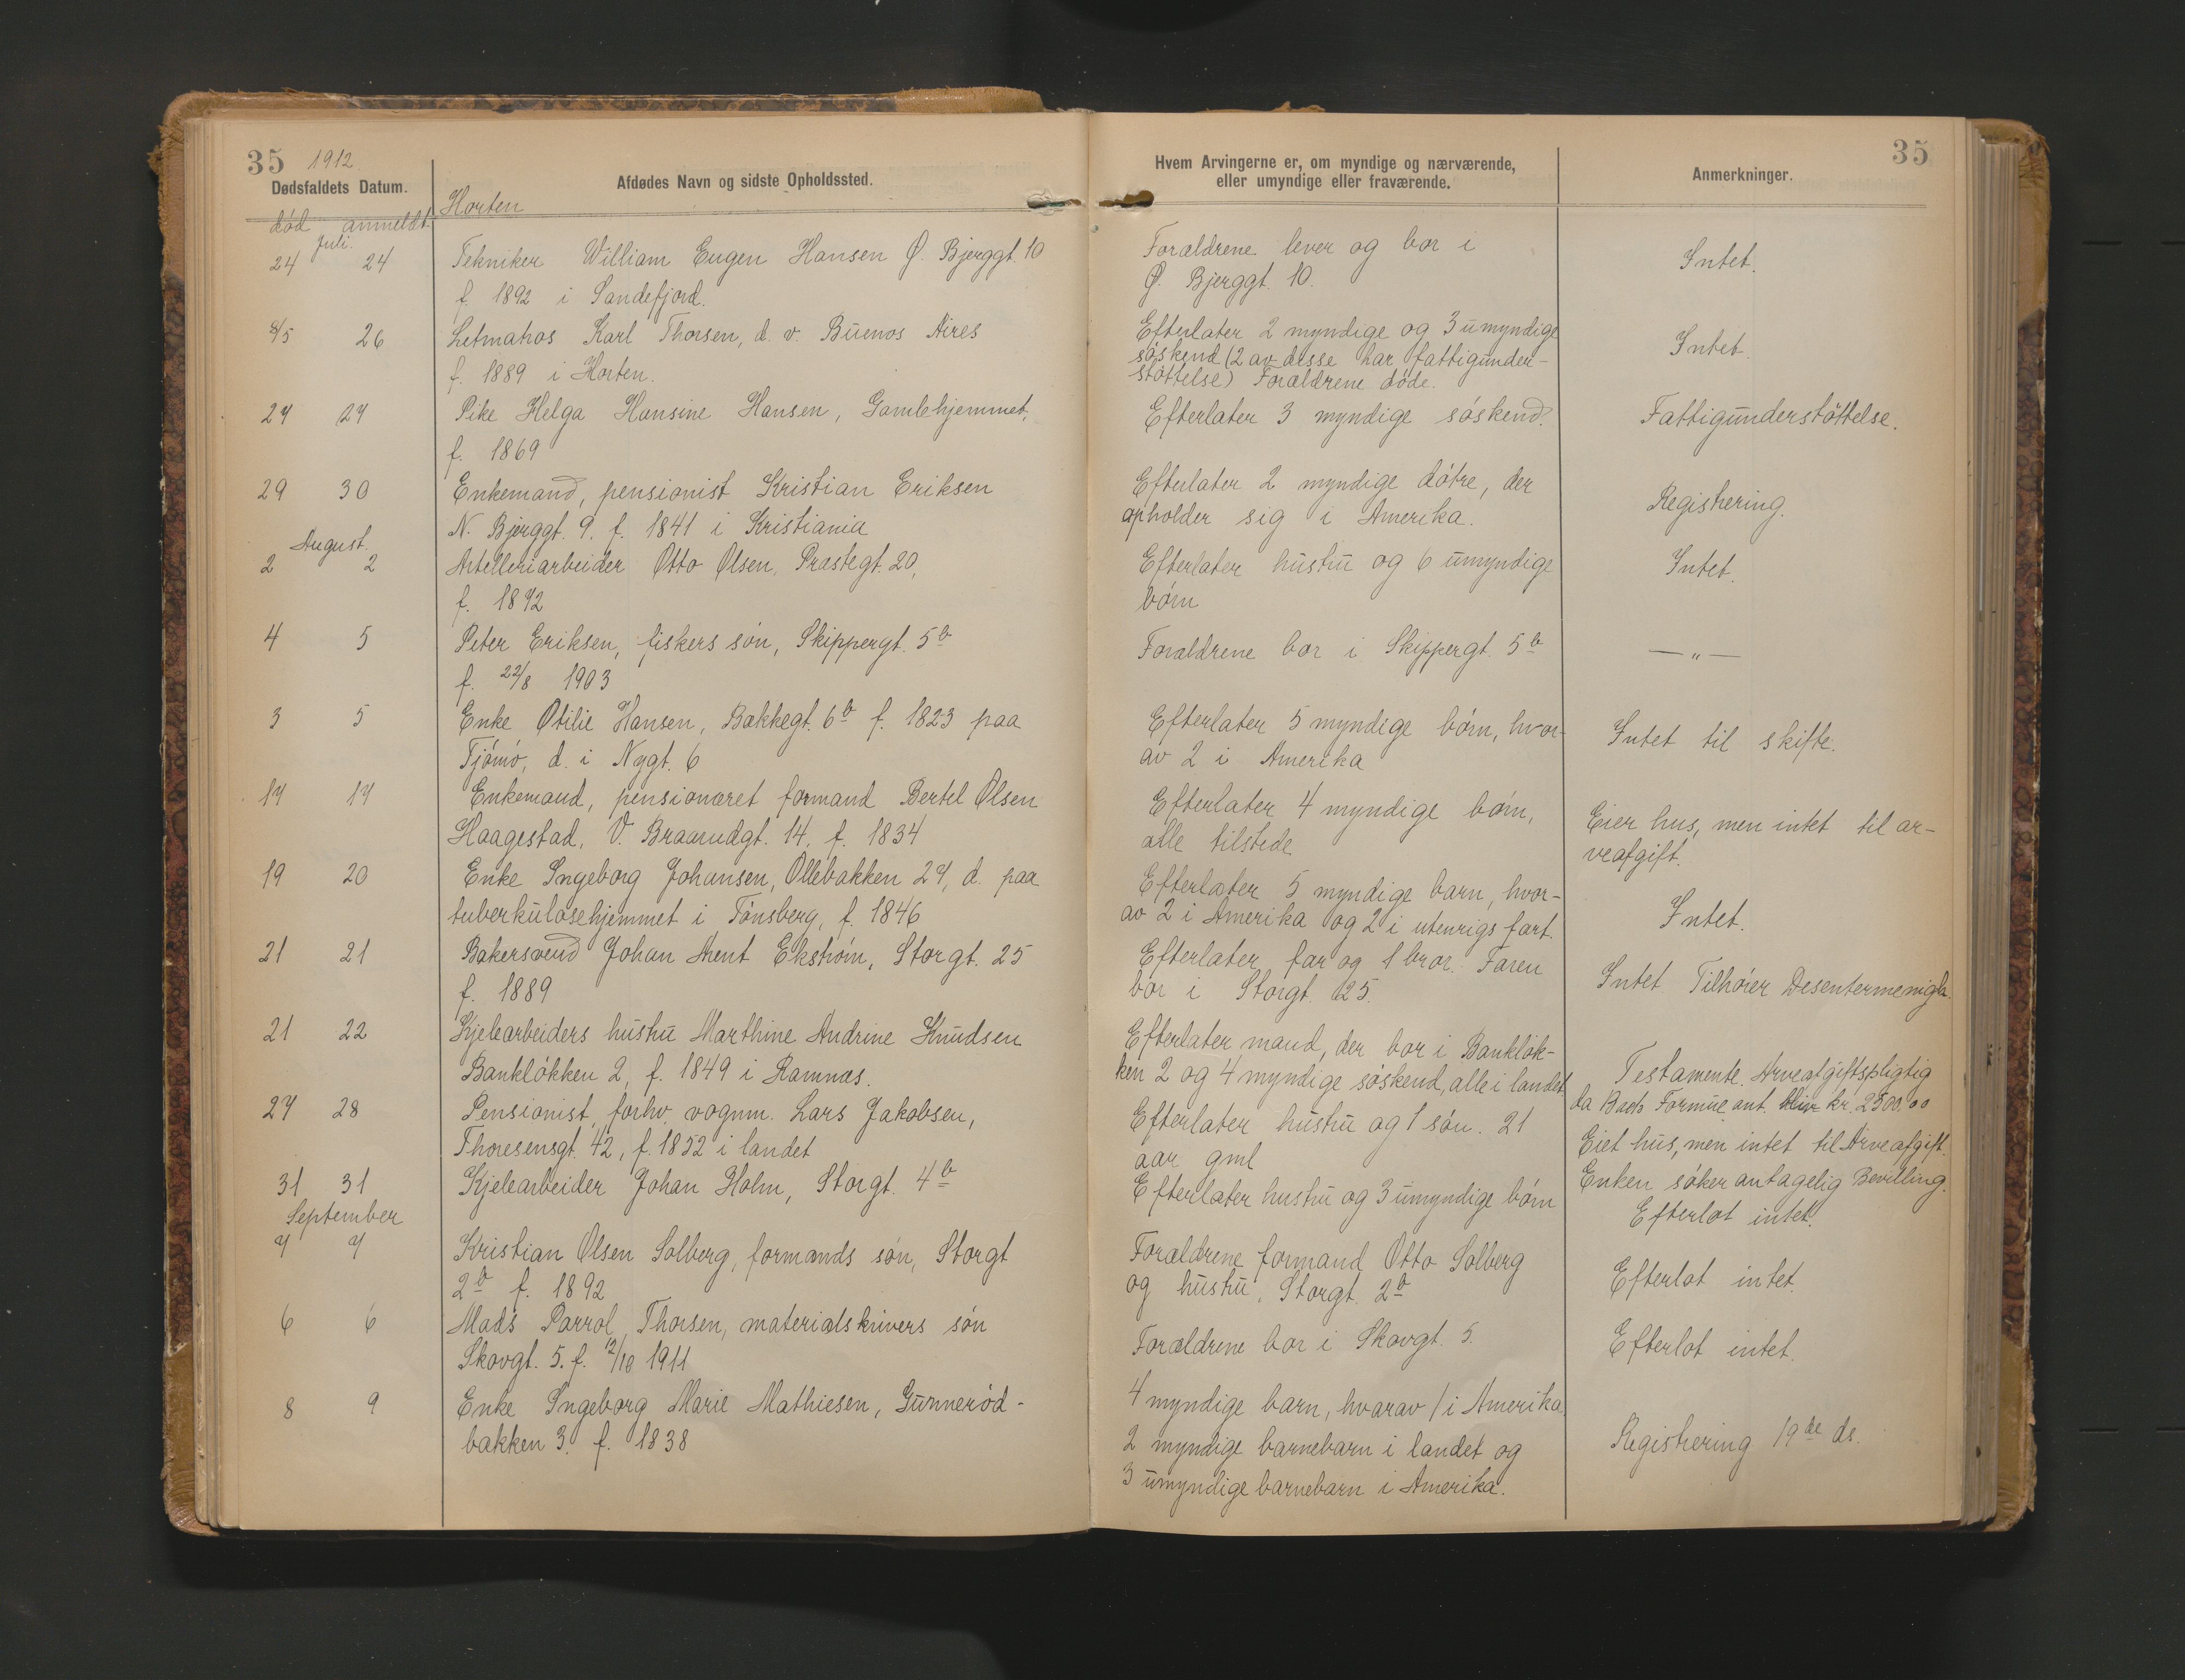 35 1912.
Dødsfaldets Datum.
Afdødes Navn og sidste Opholdssted.
Hvem Arvingerne er, om myndige og nærværende,
eller umyndige eller fraværende.
Anmerkninger.
35
død anmeldt
Horten
Juli.
24 24 Tekniker William Eugen Hansen Ø. Bjerggt. 10
f. 1892 i Sandefjord.
Forældrene lever og bor i
Ø. Bjerggt. 10.
Intet.
8/5 26 Letmatros Karl Thorsen, d. v. Buenos Aires
f. 1889 i Horten.
Efterlater 2 myndige og 3 umyndige
søskend (2 av disse har fattigunder-
støttelse) Forældrene døde.
Intet.
27 27 Pike Helga Hansine Hansen, Gamlehjemmet,
f. 1869
Efterlater 3 myndige søskend.
Fattigunderstøttelse.
29 30 Enkemand, pensionist Kristian Eriksen
N. Bjerggt. 9. f. 1841 i Kristiania
Efterlater 2 myndige døtre, der
opholder sig i Amerika.
Registrering.
August.
2 2 Artelleriarbeider Otto Olsen, Præstegt. 20,
f. 1872
Efterlater hustru og 6 umyndige
børn
Intet.
4 5 Peter Eriksen, fiskers søn, Skippergt. 5b
f. 22/8 1903
Forældrene bor i Skippergt. 5b
— „ —
3 5 Enke Otilie Hansen, Bakkegt. 6b f. 1823 paa
Tjømø, d. i Nygt. 6
Efterlater 5 myndige børn, hvor-
av 2 i Amerika
Intet til skifte.
17 17 Enkemand, pensionæret formand Bertel Olsen
Haagestad, V. Braarudgt. 14. f. 1834
Efterlater 4 myndige børn,
alle tilstede
Eier hus, men intet til ar-
veafgift.
19 20 Enke Ingeborg Johansen, Ollebakken 27, d. paa
tuberkulosehjemmet i Tønsberg, f. 1846
Efterlater 5 myndige barn, hvor-
av 2 i Amerika og 2 i utenrigs fart.
Intet.
21 21 Bakersvend Johan Arent Ekstrøm, Storgt. 25
f. 1889
Efterlater far og 1 bror. Faren
bor i Storgt. 25.
Intet. Tilhører Desentermenigh.
21 22 Kjelearbeiders hustru Marthine Andrine Knudsen
Bankløkken 2, f. 1849 i Ramnæs.
Efterlater mand, der bor i Bankløk-
ken 2 og 4 myndige søskend, alle i landet
Testamente. Arveafgiftspligtig
da Boets Formue ant. bliver kr. 2500.00
27 28 Pensionist, forhv. vognm. Lars Jakobsen,
Thoresensgt. 42, f. 1852 i landet
Efterlater hustru og 1 søn. 21
aar gml
Eiet hus, men intet til Arveafgift.
Enken søker antagelig Bevilling.
31 31 Kjelearbeider Johan Holm, Storgt. 4b
Efterlater hustru og 3 umyndige børn
Efterlot intet.
September
7 7 Kristian Olsen Solberg, formands søn, Storgt
2b f. 1892
Forældrene formand Otto Solberg
og hustru, Storgt. 2b
Efterlot intet.
6 6 Mads Parrol Thorsen, materialskrivers søn
Skovgt. 5. f. 12/10 1911
Forældrene bor i Skovgt. 5.
Efterlot intet.
8 9 Enke Ingeborg Marie Mathiesen, Gunnerød-
bakken 3. f. 1838
4 myndige barn, hvorav 1 i Amerika.
2 myndige barnebarn i landet og
3 umyndige barnebarn i Amerika.
Registrering 19de ds.